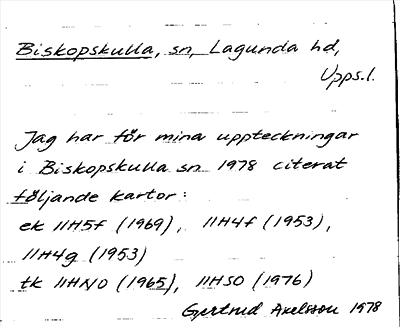 Biskopskulla, sn, Lagunda hd,
Upps.l.
Jag har för mina uppteckningar
i Biskopskulla sn 1978 citerat
följande kartor:
ek 11H5f (1969), 11H4f (1953),
11H4g (1953)
tk 11HNO (1965), 11HSO (1976)
Gertrud Axelsson 1978